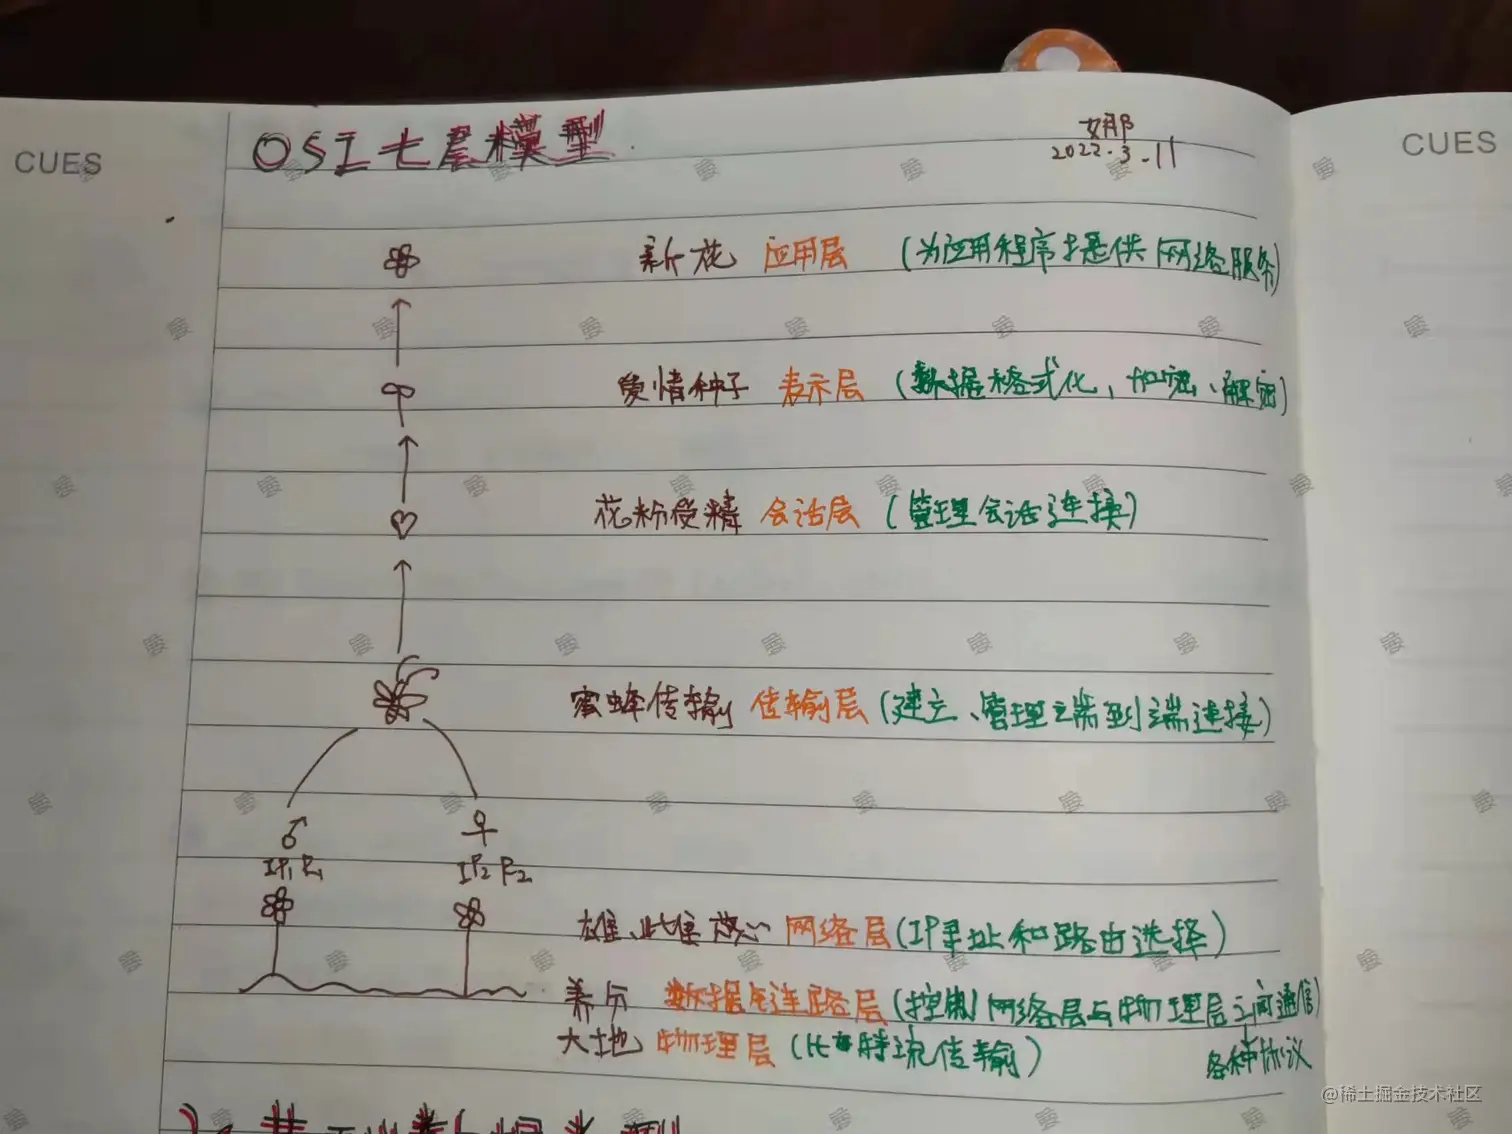 CUES
CUES
OSI七层模型
娜
2022.3.11
新花 应用层 (为应用程序提供网络服务)
爱情种子 表示层 (数据格式化、加密、解密)
花粉受精 会话层 (管理会话连接)
蜜蜂传输 传输层 (建立、管理端到端连接)
♂ ♀
IP1 P1 IP2 P2
雄、雌蕊 网络层 (IP寻址和路由选择)
养分 数据链路层 (控制网络层与物理层之间通信)
大地 物理层 (比特流传输) 各种协议
@稀土掘金技术社区